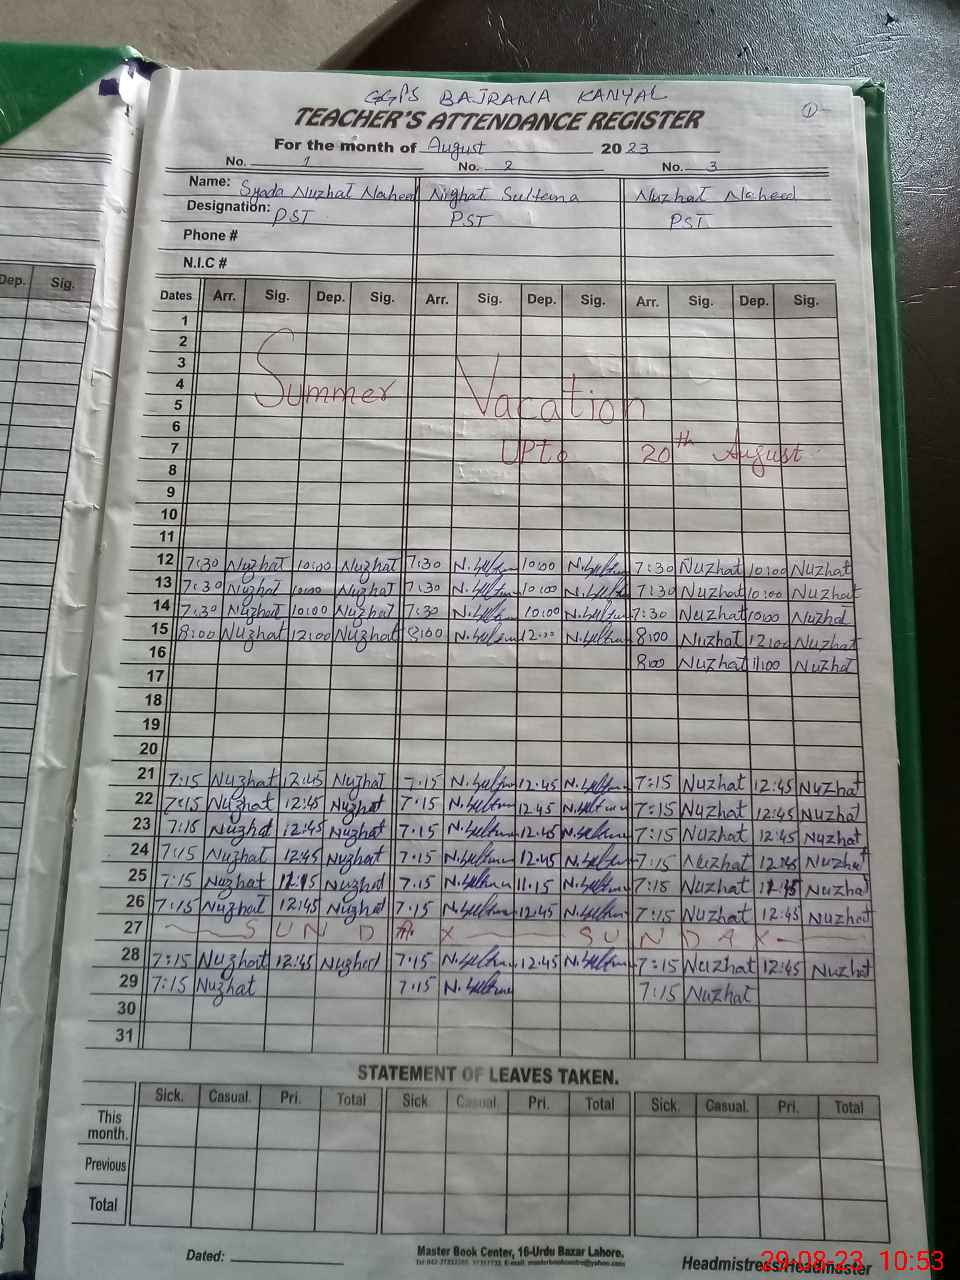 GGPS BAJRANA KANYAL
①
TEACHER'S ATTENDANCE REGISTER
For the month of August 2023
No. 1 No. 2 No. 3
Name: Syada Nuzhat Naheed Nighat Sultana Nuzhat Naheed
Designation: PST PST PST
Phone #
N.I.C #
Dep. Sig.
Dates Arr. Sig. Dep. Sig. Arr. Sig. Dep. Sig. Arr. Sig. Dep. Sig.
1
2
3
4
Summer Vacation
5
6
7 UPto 20th August
8
9
10
11
12 7:30 Nuzhat 10:00 Nuzhat 7:30 N.Sultana 10:00 N.Sultana 7:30 Nuzhat 10:00 Nuzhat
13 7:30 Nuzhat 10:00 Nuzhat 7:30 N.Sultana 10:00 N.Sultana 7:30 Nuzhat 10:00 Nuzhat
14 7:30 Nuzhat 10:00 Nuzhat 7:30 N.Sultana 10:00 N.Sultana 7:30 Nuzhat 10:00 Nuzhat
15 8:00 Nuzhat 12:00 Nuzhat 8:00 N.Sultana 12:00 N.Sultana 8:00 Nuzhat 12:00 Nuzhat
16 8:00 Nuzhat 11:00 Nuzhat
17
18
19
20
21 7:15 Nuzhat 12:45 Nuzhat 7:15 N.Sultana 12:45 N.Sultana 7:15 Nuzhat 12:45 Nuzhat
22 7:15 Nuzhat 12:45 Nuzhat 7:15 N.Sultana 12:45 N.Sultana 7:15 Nuzhat 12:45 Nuzhat
23 7:15 Nuzhat 12:45 Nuzhat 7:15 N.Sultana 12:45 N.Sultana 7:15 Nuzhat 12:45 Nuzhat
24 7:15 Nuzhat 12:45 Nuzhat 7:15 N.Sultana 12:45 N.Sultana 7:15 Nuzhat 12:45 Nuzhat
25 7:15 Nuzhat Nuzhat 7:15 N.Sultana 11:15 N.Sultana 7:15 Nuzhat Nuzhat
26 7:15 Nuzhat 12:45 Nuzhat 7:15 N.Sultana 12:45 N.Sultana 7:15 Nuzhat 12:45 Nuzhat
27 SUNDAY SUNDAY
28 7:15 Nuzhat 12:45 Nuzhat 7:15 N.Sultana 12:45 N.Sultana 7:15 Nuzhat 12:45 Nuzhat
29 7:15 Nuzhat 7:15 N.Sultana 7:15 Nuzhat
30
31
STATEMENT OF LEAVES TAKEN.
Sick. Casual. Pri. Total Sick. Casual. Pri. Total Sick. Casual. Pri. Total
This month.
Previous
Total
Dated:
Master Book Center, 16-Urdu Bazar Lahore.
Headmistress/Headmaster
29-08-23 10:53